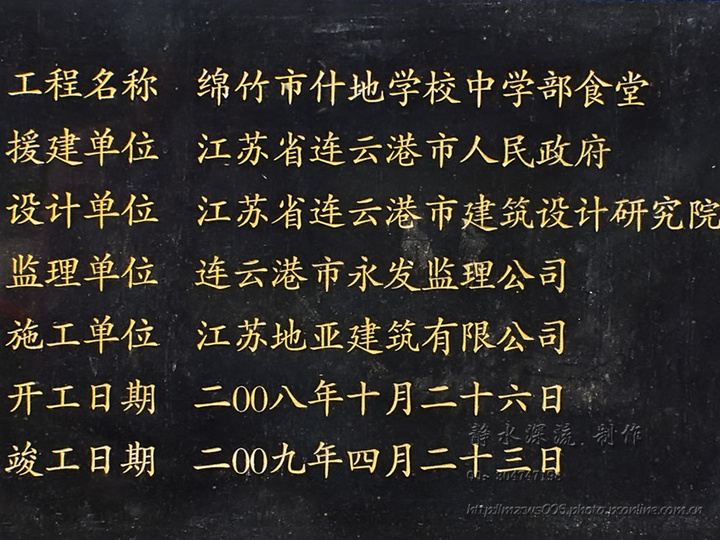 工程名称 绵竹市什地学校中学部食堂
援建单位 江苏省连云港市人民政府
设计单位 江苏省连云港市建筑设计研究院
监理单位 连云港市永发监理公司
施工单位 江苏地亚建筑有限公司
开工日期 二00八年十月二十六日
竣工日期 二00九年四月二十三日
静水深流.制作
http://mzsws006.photo.pconline.com.cn